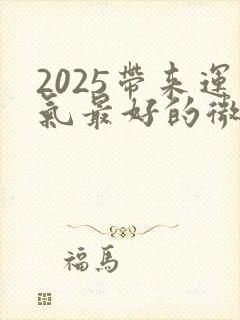 2025帶來運
氣最好的微
福馬